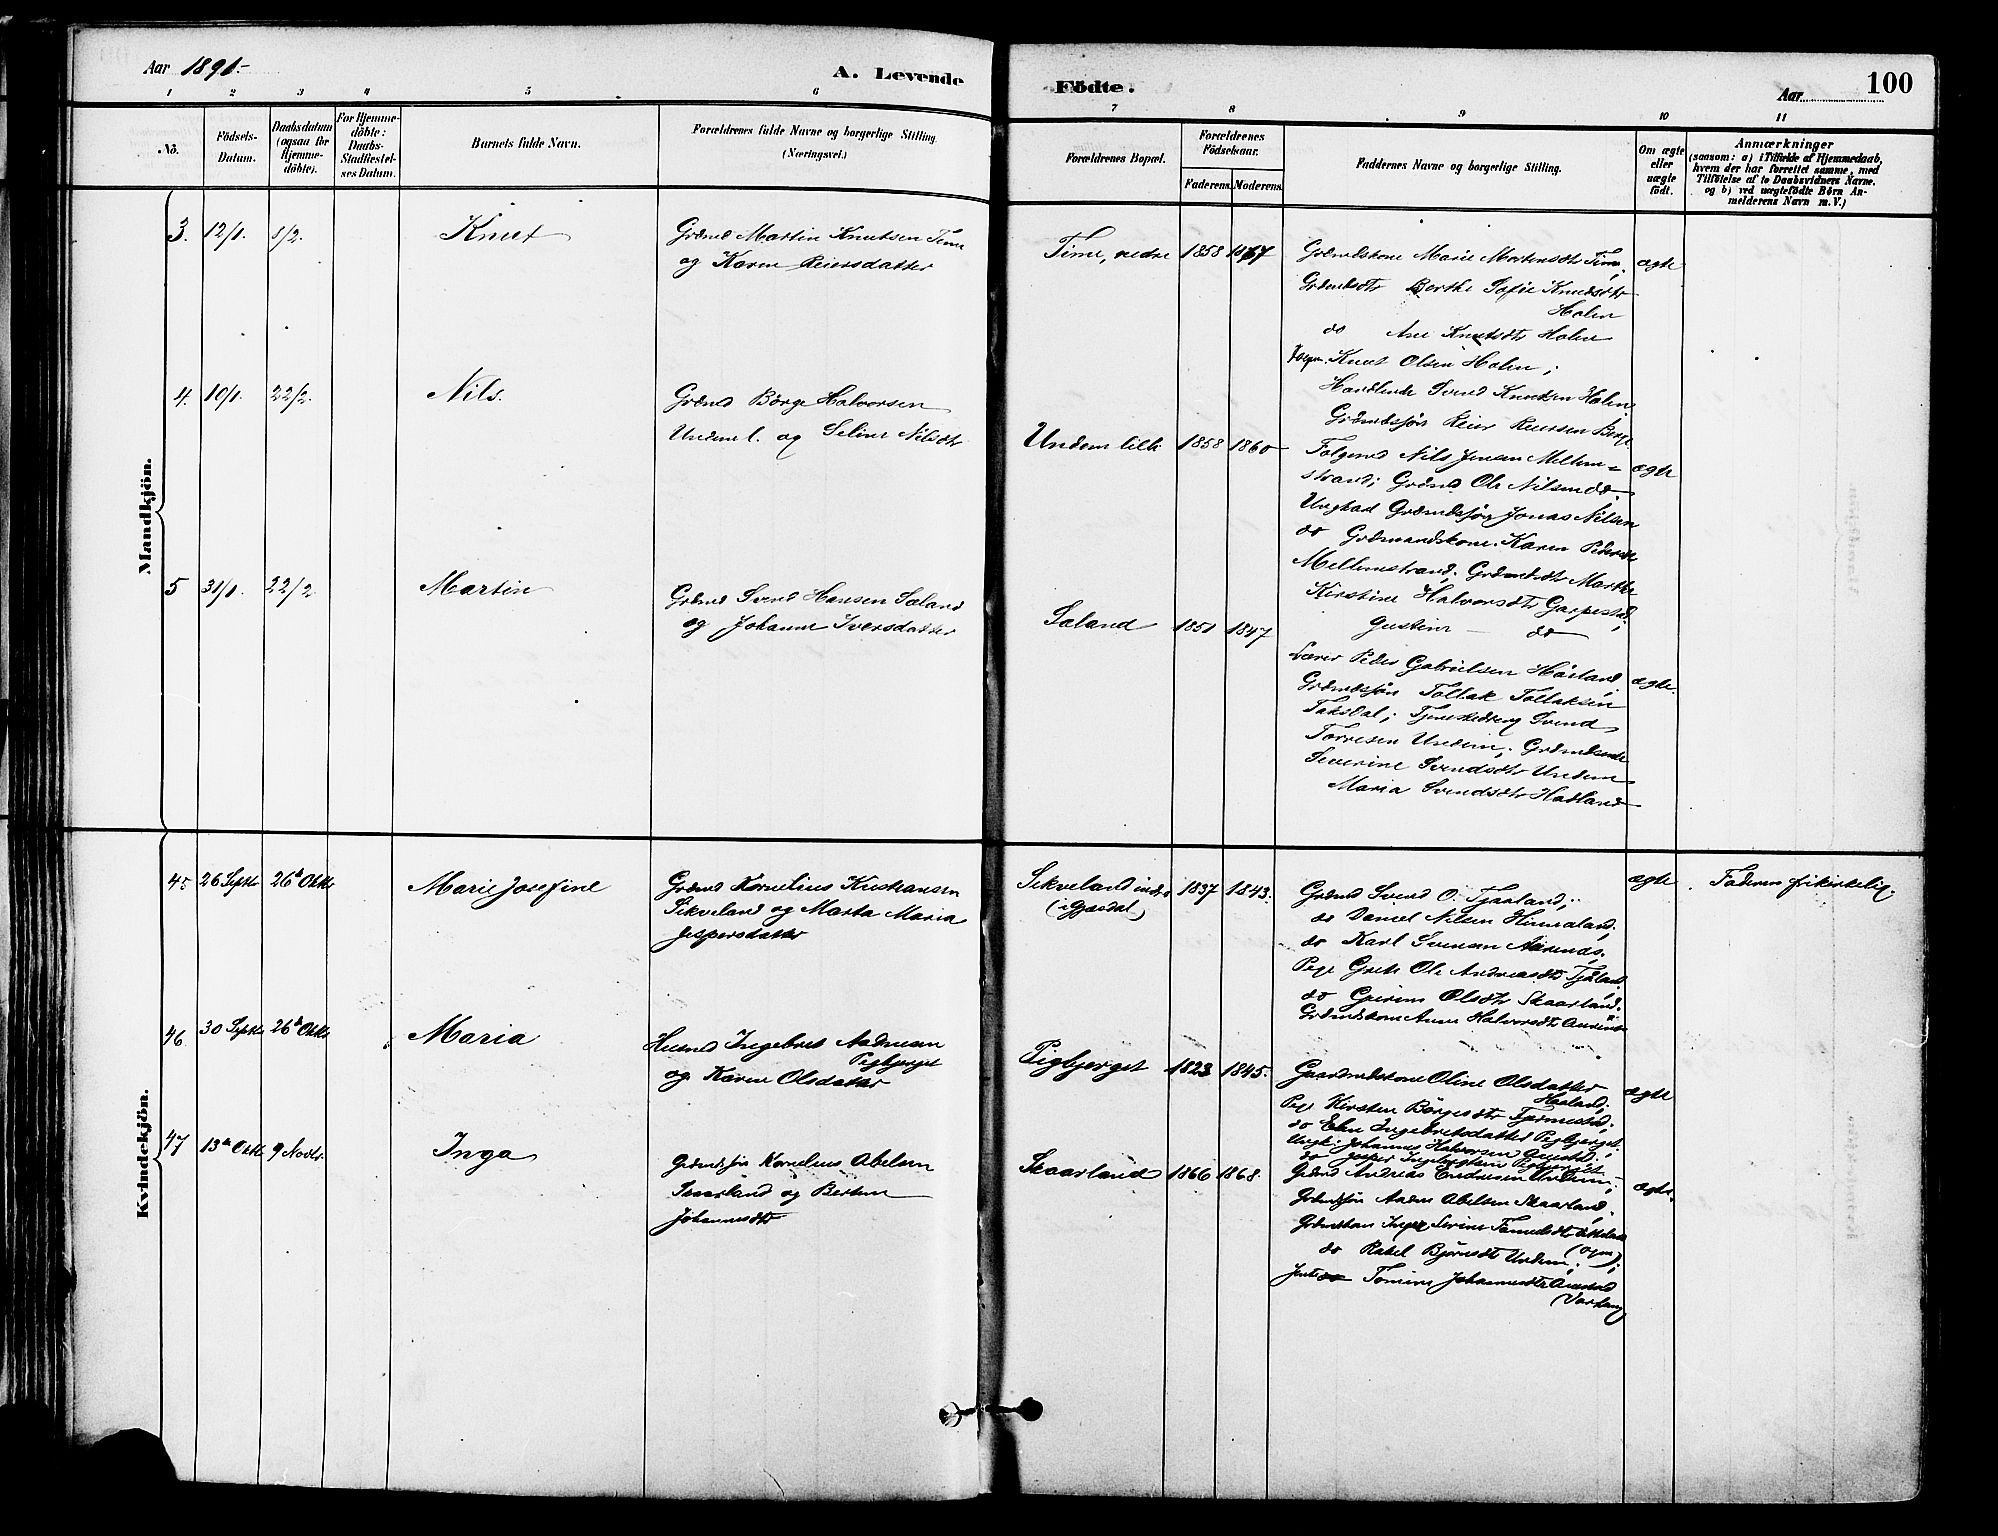 Aar 1891.
A. Levende
Födte.
Aar
100
1 2 3 4 5 6 7 8 9 10 11
No.
Födsels-
Datum.
Daabsdatum
(ogsaa for
Hjemme-
döbte).
For Hjemme-
döbte:
Daabs-
Stadfæstel-
ses Datum.
Barnets fulde Navn.
Forældrenes fulde Navne og borgerlige Stilling.
(Næringsvei.)
Forældrenes Bopæl.
Forældrenes
Födselsaar.
Faderens. Moderens.
Faddernes Navne og borgerlige Stilling.
Om ægte
eller
uægte
födt.
Anmærkninger
(saasom: a) i Tilfælde af Hjemmedaab,
hvem der har forrettet samme, med
Tilföielse af to Daabsvidners Navne.
og b) ved uægtefödte Börn An-
melderens Navn m. V.)
Mandkjön.
3. 12/1. 8/2. Knut
Grdmd Martin Knutsen Time
og Karen Reiersdatter
Time, nedre 1858 1867
Grdmdskone Marie Martensdtr Time,
Grdmdsdtr Berthe Sofie Knudsdtr
Holen
do Ane Knutsdtr Holen
Knut Olsen Holen;
Handlende Svend Knudsen Holen
Grdmdssøn Reier Berge
ægte
4. 10/1. 22/2. Nils.
Grdmd Börge Halvorsen
Undem l. og Seline Nilsdtr
Undem lille 1858 1860
Folgemd Nils Jensen Mellem-
strand; Grdmd Ole Nilsen do.
Ungkad Grdmdssøn Jonas Nilsen
do Grdmandskone Karen
Mellemstrand, Grdmdsdtr Marthe
Kirstine Halvorsdtr Garpestad;
Gustine — do
ægte
5 31/1. 22/2 Martin
Grdmd Svend Hansen Söland
og Johanne Iversdatter
Söland 1851 1847
Lærer Peder Gabrielsen Hörland,
Grdmdssøn Tollak Tollaksen
Taksdal; Tjenestedreng Svend
Torresen Undem;
Severine Svendsdtr Undem
Maria Svendsdtr Hadland
ægte.
Kvindekjön.
45 26 Septr 26d Oktr Marie Josefine
Grdmd Kornelius Kristiansen
Sikveland og Marta Maria
Jespersdatter
Sikveland indre
(i Gjæsdal)
1837 1843.
Grdmd Svend O. Tjaaland,
do Daniel Nilsen Himaland,
do Karl Svensen
Pige Andreasdtr Tjåland
do Gurine Olsdtr Skaarland.
Grdmdskone Anne Halvorsdtr
ægte
Faderen frikirkelig.
46 30 Septr 26d Oktr Maria
Husmd Ingebret Andreassen
Pigbjerget
og Karen Olsdatter
Pigbjerget 1823 1845.
Gaardmdskone Oline Olsdatter
Haaland;
Pige Kirsten Börgesdtr
do Elen Ingebretsdatter Pigbjerget.
Ungk: Johannes Halvorsen
do Jesper Ingebrigtsen Pigbjerget
ægte
47 13de Oktr. 9 Novbr. Inga
Grdmdssøn Kornelius Abelsen
Skaarland og Bertine
Johannesdtr
Skaarland 1866 1868.
Grdmd Andreas Endresen Undem;
Grdmdssøn Abelsen Skaarland,
do Rakel Björnsdtr Undem; (Ogn);
Jente Tomine Johannesdtr
(Varhaug
ægte.